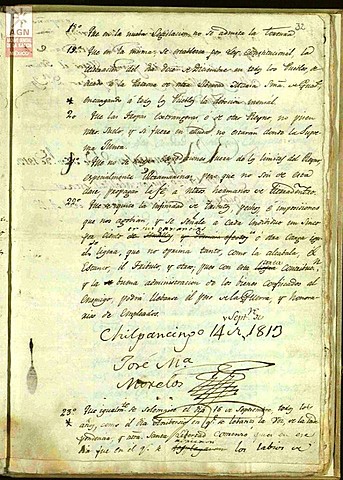 AGN
32
18º. Que en la nueva legislacion no se admita la Tortura
19º. Que en la misma se establesca por Ley Constitucional la
celebracion del dia doce de Diciembre en todos los Pueblos, de-
dicado a la Patrona de nuestra Libertad Maria Sma. de Guad.
* encargando á todos los Pueblos la devocion mensal.
20 Que las tropas extrangeras, ó de otro Reyno, no pisen
nuestro Suelo, y si fuere en ayuda, no estarán donde la Supre-
ma Junta.
Que no se hagan expediciones fuera de los limites del Reyno,
especialmente Ultramarinas, pero que no son de esta
clase, propagar la fé a nuestros hermanos de tierradentro.
22º. Que se quite la infinidad de tributos, pechos, é imposiciones
que nos agobian, y se señale á cada individuo un cinco
por ciento en sus ganancias ú otra carga igual
de ligera, que no oprima tanto, como la alcabala, el
Estanco, el Tributo, y otros, pues con esta corta contribucion,
y la buena administracion de los bienes confiscados al
Enemigo, podrá llebarse el peso de la Guerra, y honora-
rios de Empleados.
Chilpancingo 14 de Septre. de 1813
José Ma.
Morelos
23º. Que igualmte. se solemnice el dia 16 de Septiembre, todos los
* años, como el dia Anibersario en qe. se lebantó la Voz de la Inde-
pendencia, y nuestra Santa Libertad Comenzó, pues en ese
dia fue en el qe. se los labios de